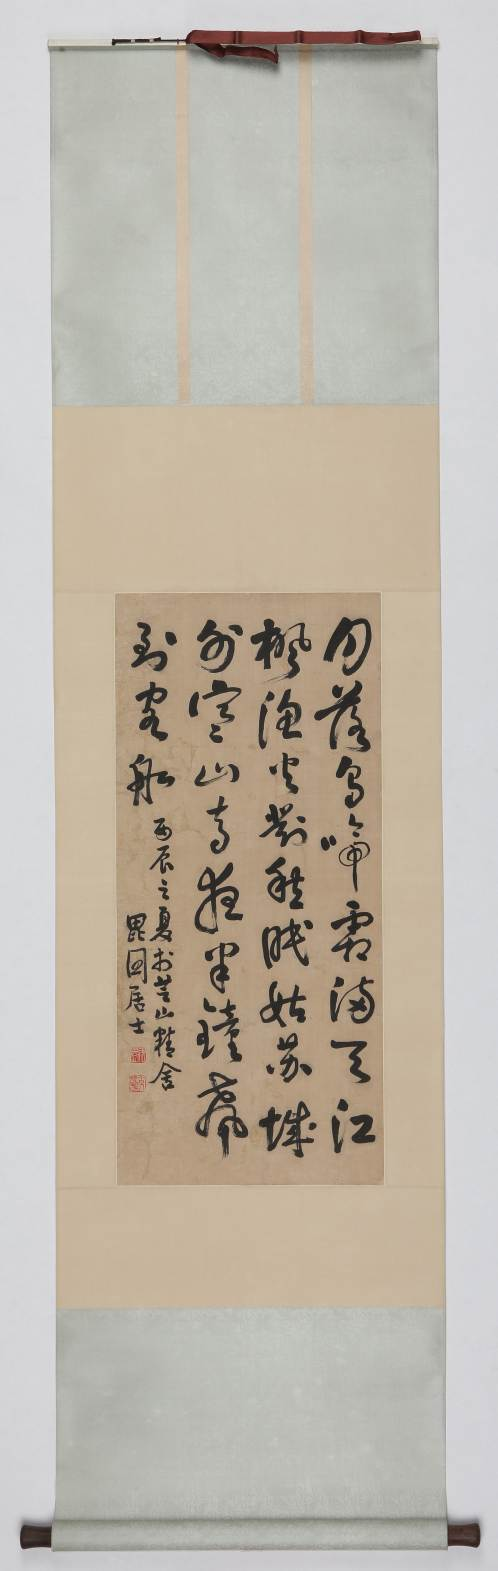 月落烏啼霜滿天江
楓漁火對愁眠姑蘇城
外寒山寺夜半鐘聲
到客船
丙辰之夏於山精舍
居士